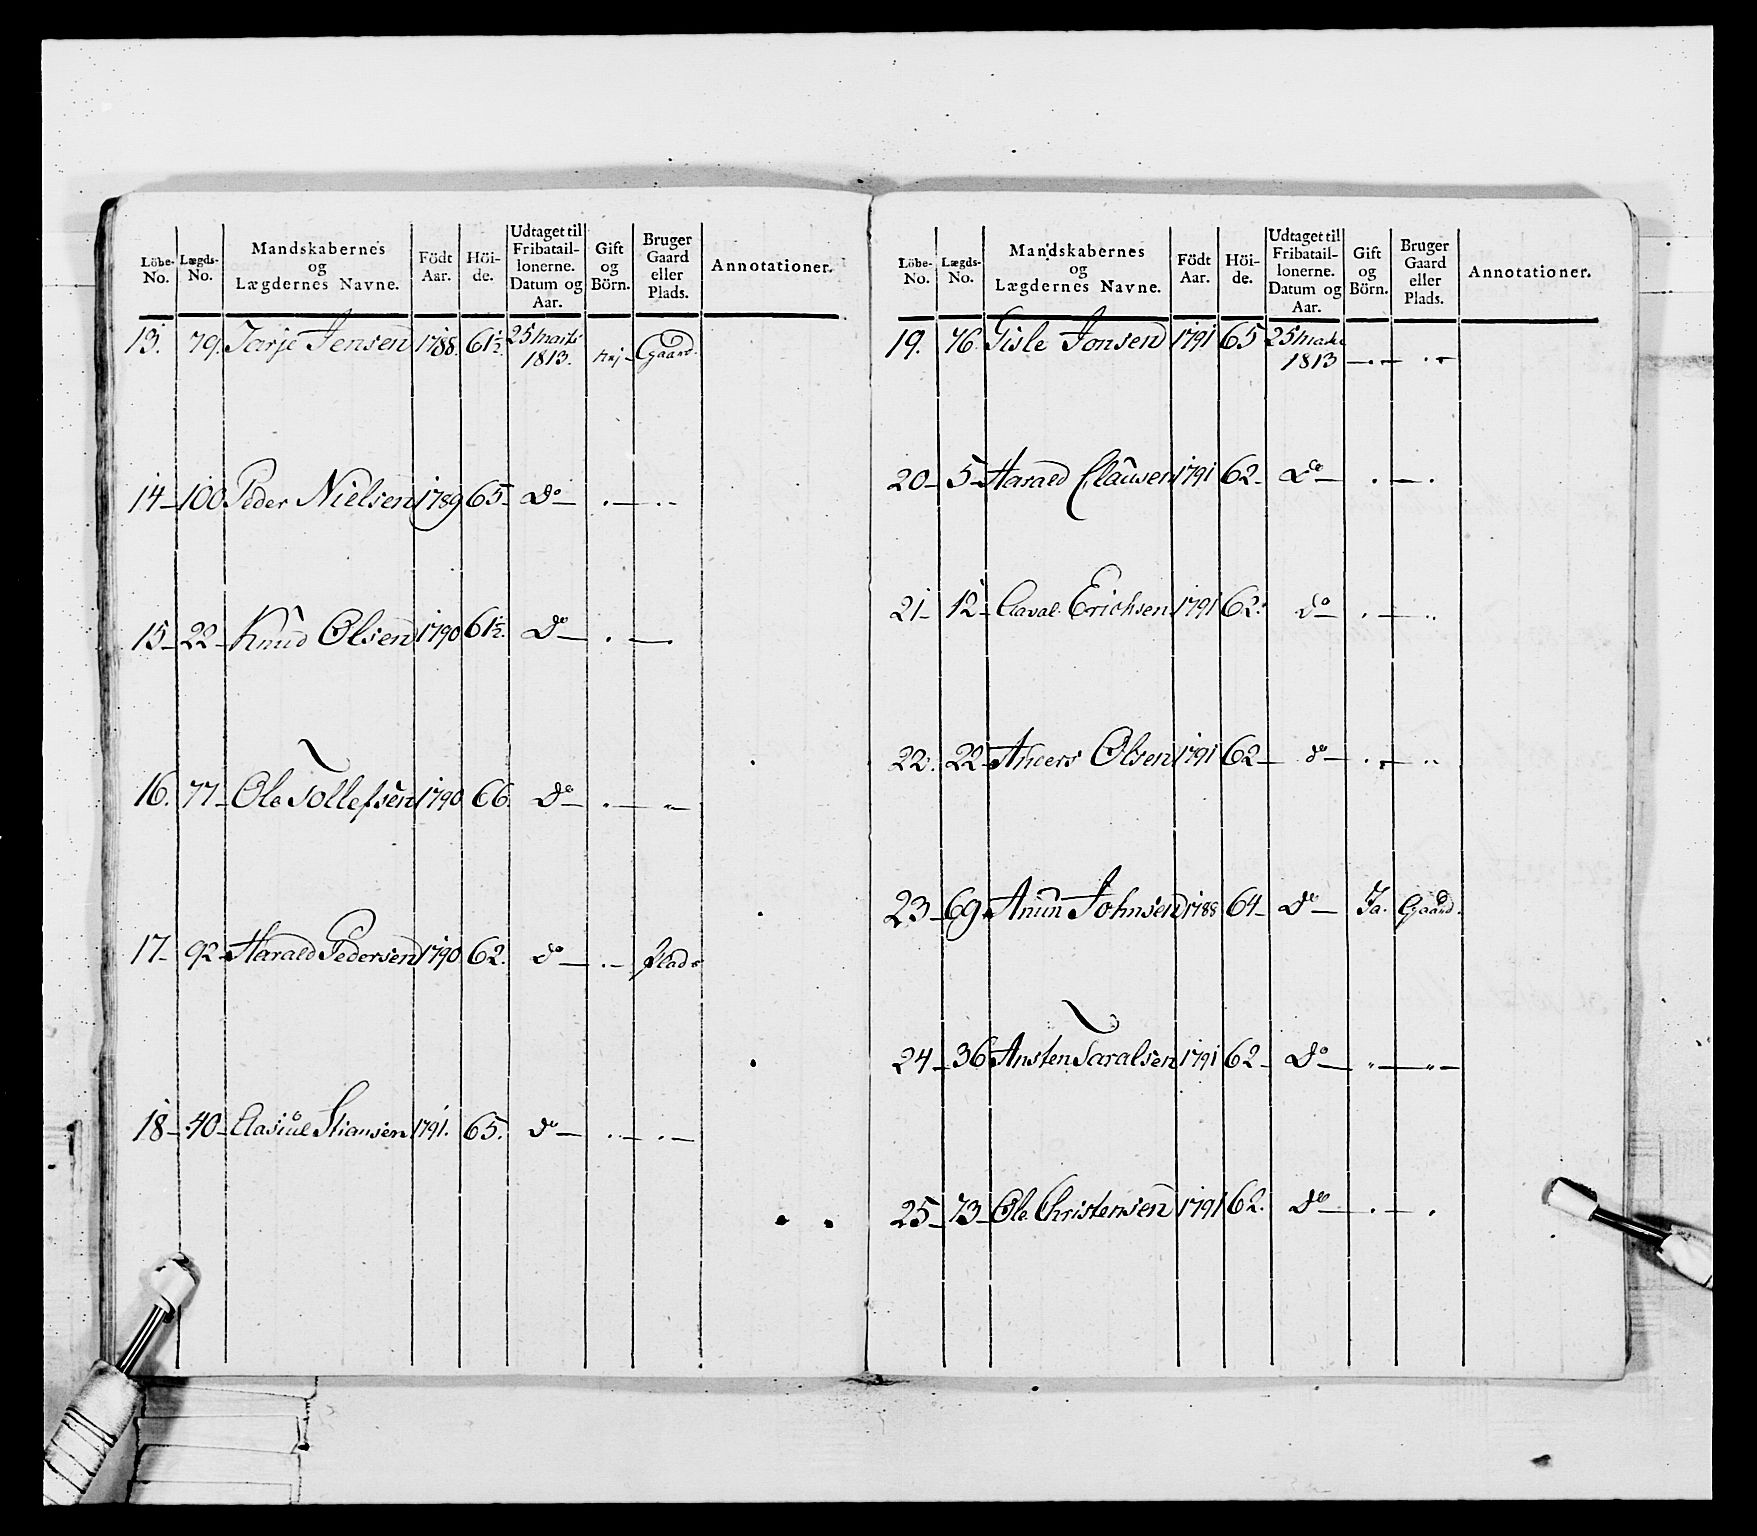 Löbe-No. Lægds-No. Mandskabernes og Lægdernes Navne. Födt Aar. Höi-de. Udtaget til Fribatail-lonerne. Datum og Aar. Gift og Börn. Bruger Gaard eller Plads. Annotationer.
13. 79. Tarje Jensen 1788. 61½. 25 Marts 1813. Nej - Gaard.
14 - 100 Peder Nielsen 1789 65 - do - . - . . -
15 - 22 - Knud Olsen 1790 61½. do - . - .
16. 77 - Ole Tollefsen 1790 66. do - . - " -
17 - 92 - Harald Pedersen 1790 62. do - . . - Plads
18 - 40 - Aasiul Stiansen 1791. 65. do - . . - . . -
Löbe-No. Lægds-No. Mandskabernes og Lægdernes Navne. Födt Aar. Höi-de. Udtaget til Fribatail-lonerne. Datum og Aar. Gift og Börn. Bruger Gaard eller Plads. Annotationer.
19. 76. Gisle Jonsen 1791 65 25 Marts 1813 - . . - . . -
20 - 5 - Harald Clausen 1791 62 - do - . - .
21 - 12 - Aaval Erichsen 1791 62. do - . - . .
22. 22 - Anders Olsen 1791 62 - do - . . - . .
23 - 69. Anun Johnsen 1788 64 - do - Ja. Gaard.
24 - 36 Ansten Taralsen 1791 62 - do - " - " -
25 - 73 - Ole Christensen 1791 62. do - . - .